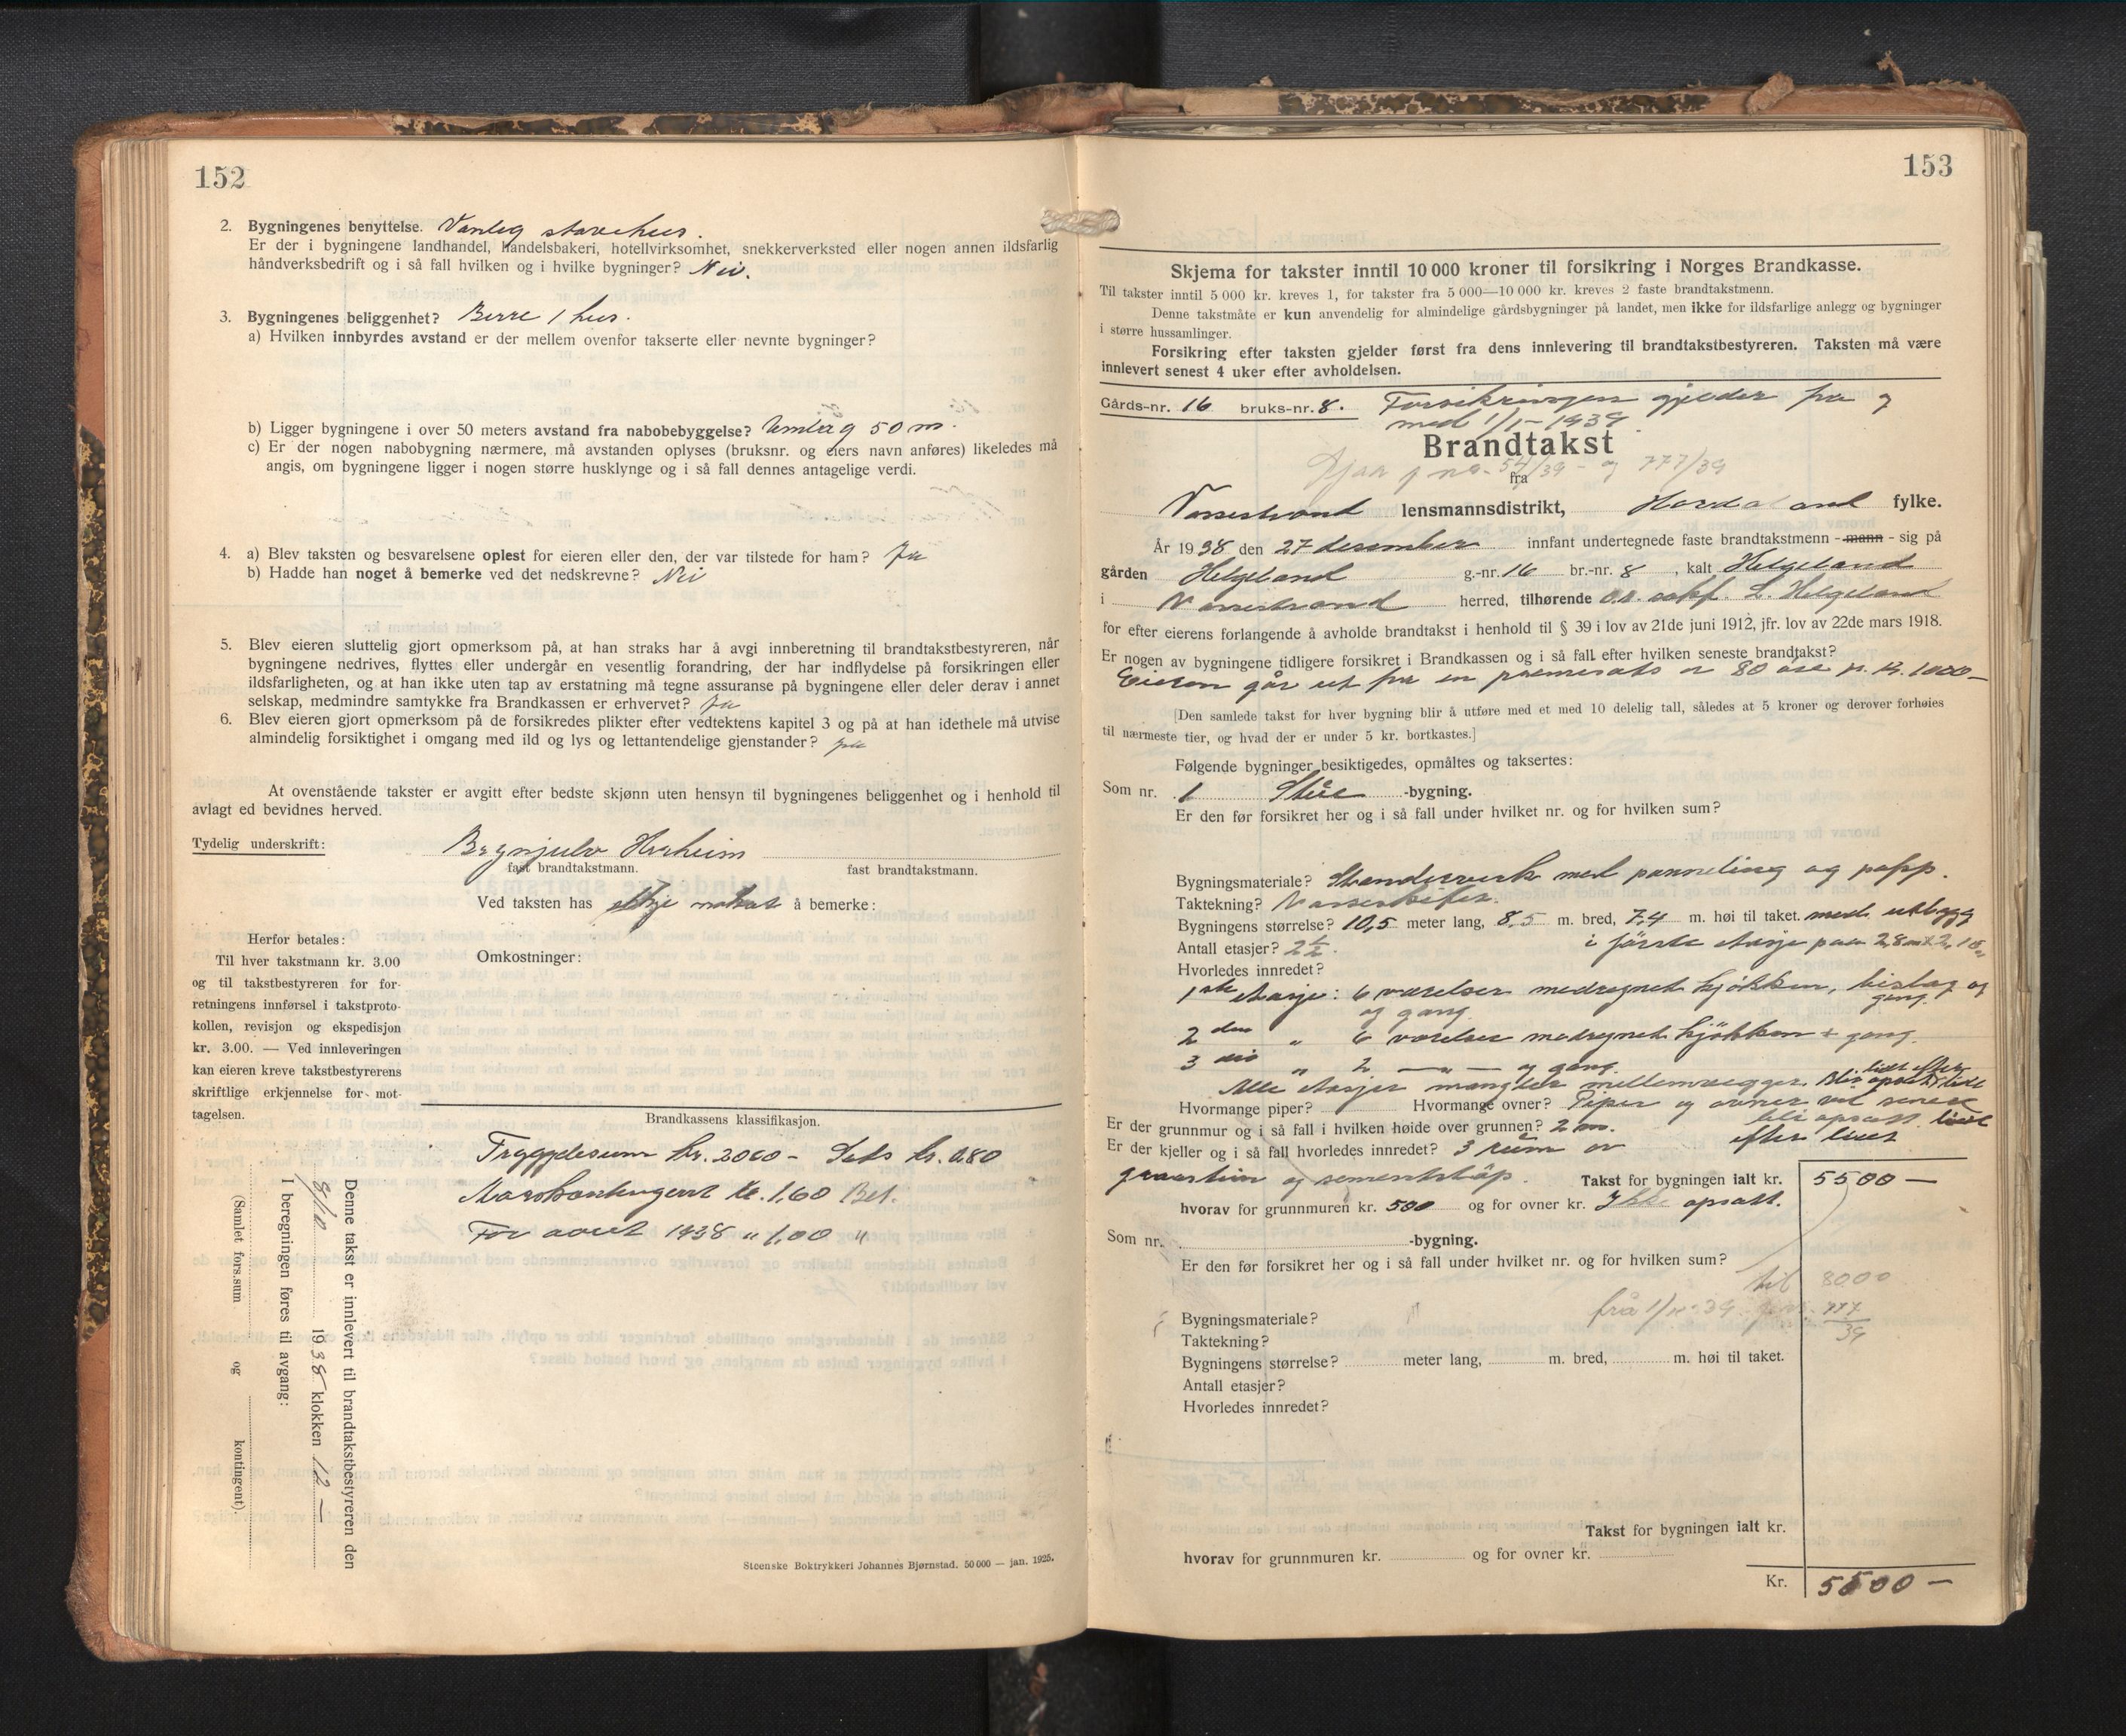 152
2. Bygningenes benyttelse. Vanleg stovehus.
Er der i bygningene landhandel, handelsbakeri, hotellvirksomhet, snekkerverksted eller nogen annen ildsfarlig
håndverksbedrift og i så fall hvilken og i hvilke bygninger? Nei.
3. Bygningenes beliggenhet? Berre 1 hus.
a) Hvilken innbyrdes avstand er der mellem ovenfor takserte eller nevnte bygninger?
b) Ligger bygningene i over 50 meters avstand fra nabobebyggelse? 50 m.
c) Er der nogen nabobygning nærmere, må avstanden oplyses (bruksnr. og eiers navn anføres) likeledes må
angis, om bygningene ligger i nogen større husklynge og i så fall dennes antagelige verdi.
4. a) Blev taksten og besvarelsene oplest for eieren eller den, der var tilstede for ham? Ja
b) Hadde han noget å bemerke ved det nedskrevne? Nei
5. Blev eieren sluttelig gjort opmerksom på, at han straks har å avgi innberetning til brandtakstbestyreren, når
bygningene nedrives, flyttes eller undergår en vesentlig forandring, der har indflydelse på forsikringen eller
ildsfarligheten, og at han ikke uten tap av erstatning må tegne assuranse på bygningene eller deler derav i annet
selskap, medmindre samtykke fra Brandkassen er erhvervet? Ja
6. Blev eieren gjort opmerksom på de forsikredes plikter efter vedtektens kapitel 3 og på at han idethele må utvise
almindelig forsiktighet i omgang med ild og lys og lettantendelige gjenstander? Ja
At ovenstående takster er avgitt efter bedste skjønn uten hensyn til bygningenes beliggenhet og i henhold til
avlagt ed bevidnes herved.
Tydelig underskrift: Brynjulv Hirheim
fast brandtakstmann. fast brandtakstmann.
Ved taksten has å bemerke:
Omkostninger:
Herfor betales:
Til hver takstmann kr. 3.00
og til takstbestyreren for for-
retningens innførsel i takstproto-
kollen, revisjon og ekspedisjon
kr. 3.00. — Ved innleveringen
kan eieren kreve takstbestyrerens
skriftlige erkjennelse for mot-
tagelsen.
Brandkassens klassifikasjon.
Tryggdesum kr. 2000 - Sats kr. 0,80
kr. 1,60 Bet.
For aaret 1938 " 1,00 "
Denne takst er innlevert til brandtakstbestyreren den
8/10 1938 klokken 12 —
I beregningen føres til avgang:
(Samlet fors.sum og kontingent)
Steenske Boktrykkeri Johannes Bjørnstad. 50 000 — jan. 1925.
153
Skjema for takster inntil 10 000 kroner til forsikring i Norges Brandkasse.
Til takster inntil 5 000 kr. kreves 1, for takster fra 5 000—10 000 kr. kreves 2 faste brandtakstmenn.
Denne takstmåte er kun anvendelig for almindelige gårdsbygninger på landet, men ikke for ildsfarlige anlegg og bygninger
i større hussamlinger.
Forsikring efter taksten gjelder først fra dens innlevering til brandtakstbestyreren. Taksten må være
innlevert senest 4 uker efter avholdelsen.
Gårds-nr. 16 bruks-nr. 8. Forsikringen gjelder fra og
med 1/1-1939.
Brandtakst
54/39 - og 777/39
fra
Vossestrand lensmannsdistrikt, Hordaland fylke.
År 1938 den 27 desember innfant undertegnede faste brandtakstmenn - mann - sig på
gården Helgeland g.-nr. 16 br.-nr. 8 , kalt Helgeland
i Vossestrand herred, tilhørende L. Helgeland
for efter eierens forlangende å avholde brandtakst i henhold til § 39 i lov av 21de juni 1912, jfr. lov av 22de mars 1918.
Er nogen av bygningene tidligere forsikret i Brandkassen og i så fall efter hvilken seneste brandtakst?
Eieren går ut fra en premiesats er 80 øre pr. kr. 1000 —
[Den samlede takst for hver bygning blir å utføre med et med 10 delelig tall, således at 5 kroner og derover forhøies
til nærmeste tier, og hvad der er under 5 kr. bortkastes.]
Følgende bygninger besiktigedes, opmåltes og taksertes:
Som nr. 1 Stue -bygning.
Er den før forsikret her og i så fall under hvilket nr. og for hvilken sum?
Bygningsmateriale? Stenderverk med panneling og papp.
Taktekning? Vosseskifer.
Bygningens størrelse? 10,5 meter lang, 8,5 m. bred, 7,4 m. høi til taket. med utbygg
Antall etasjer? 2 1/2. i første etasje paa 2,8 m x 2,10
Hvorledes innredet?
1ste etasje: 6 værelser medregnet kjøkken, bislag og
gang.
og gang.
2 den " 6 værelser medregnet kjøkken + gang.
3 die " 2 —"— og gang.
Alle etasjer mangler mellemvegger. Blir opsatt lidt efter lidt
Hvormange piper? Hvormange ovner? Piper og ovner vil senere
bli opsatt lidt
Er der grunnmur og i så fall i hvilken høide over grunnen? 2 m.
efter lidt
Er der kjeller og i så fall hvorledes innredet? 3 rum av
graastein og sementstøp. Takst for bygningen ialt kr. 5500 —
hvorav for grunnmuren kr. 500 og for ovner kr. Ikke opsatt.
Som nr. -bygning.
Er den før forsikret her og i så fall under hvilket nr. og for hvilken sum?
til 8000
Bygningsmateriale? frå 1/ 39 777/39
Taktekning?
Bygningens størrelse? meter lang, m. bred, m. høi til taket.
Antall etasjer?
Hvorledes innredet?
Takst for bygningen ialt kr.
hvorav for grunnmuren kr. og for ovner kr.
Kr. 5500 —